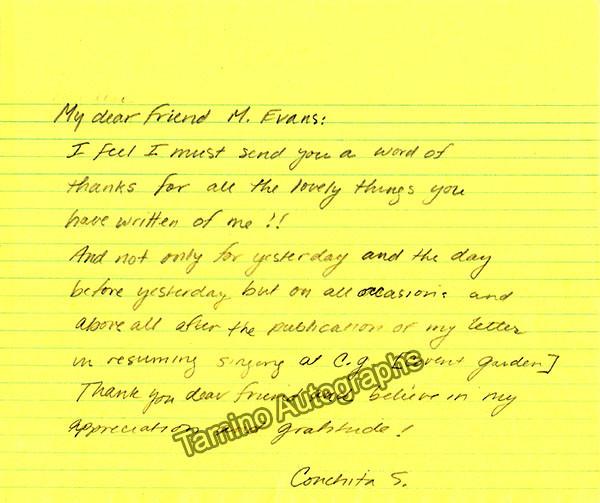 My dear friend M. Evans:
I feel I must send you a word of
thanks for all the lovely things you
have written of me!!
And not only for yesterday and the day
before yesterday but on all occasions and
above all after the publication of my letter
in resuming singing at C.g. [Covent Garden]
Thank you dear friend and believe in my
appreciation and gratitude!
Conchita S.
Tamino Autographs